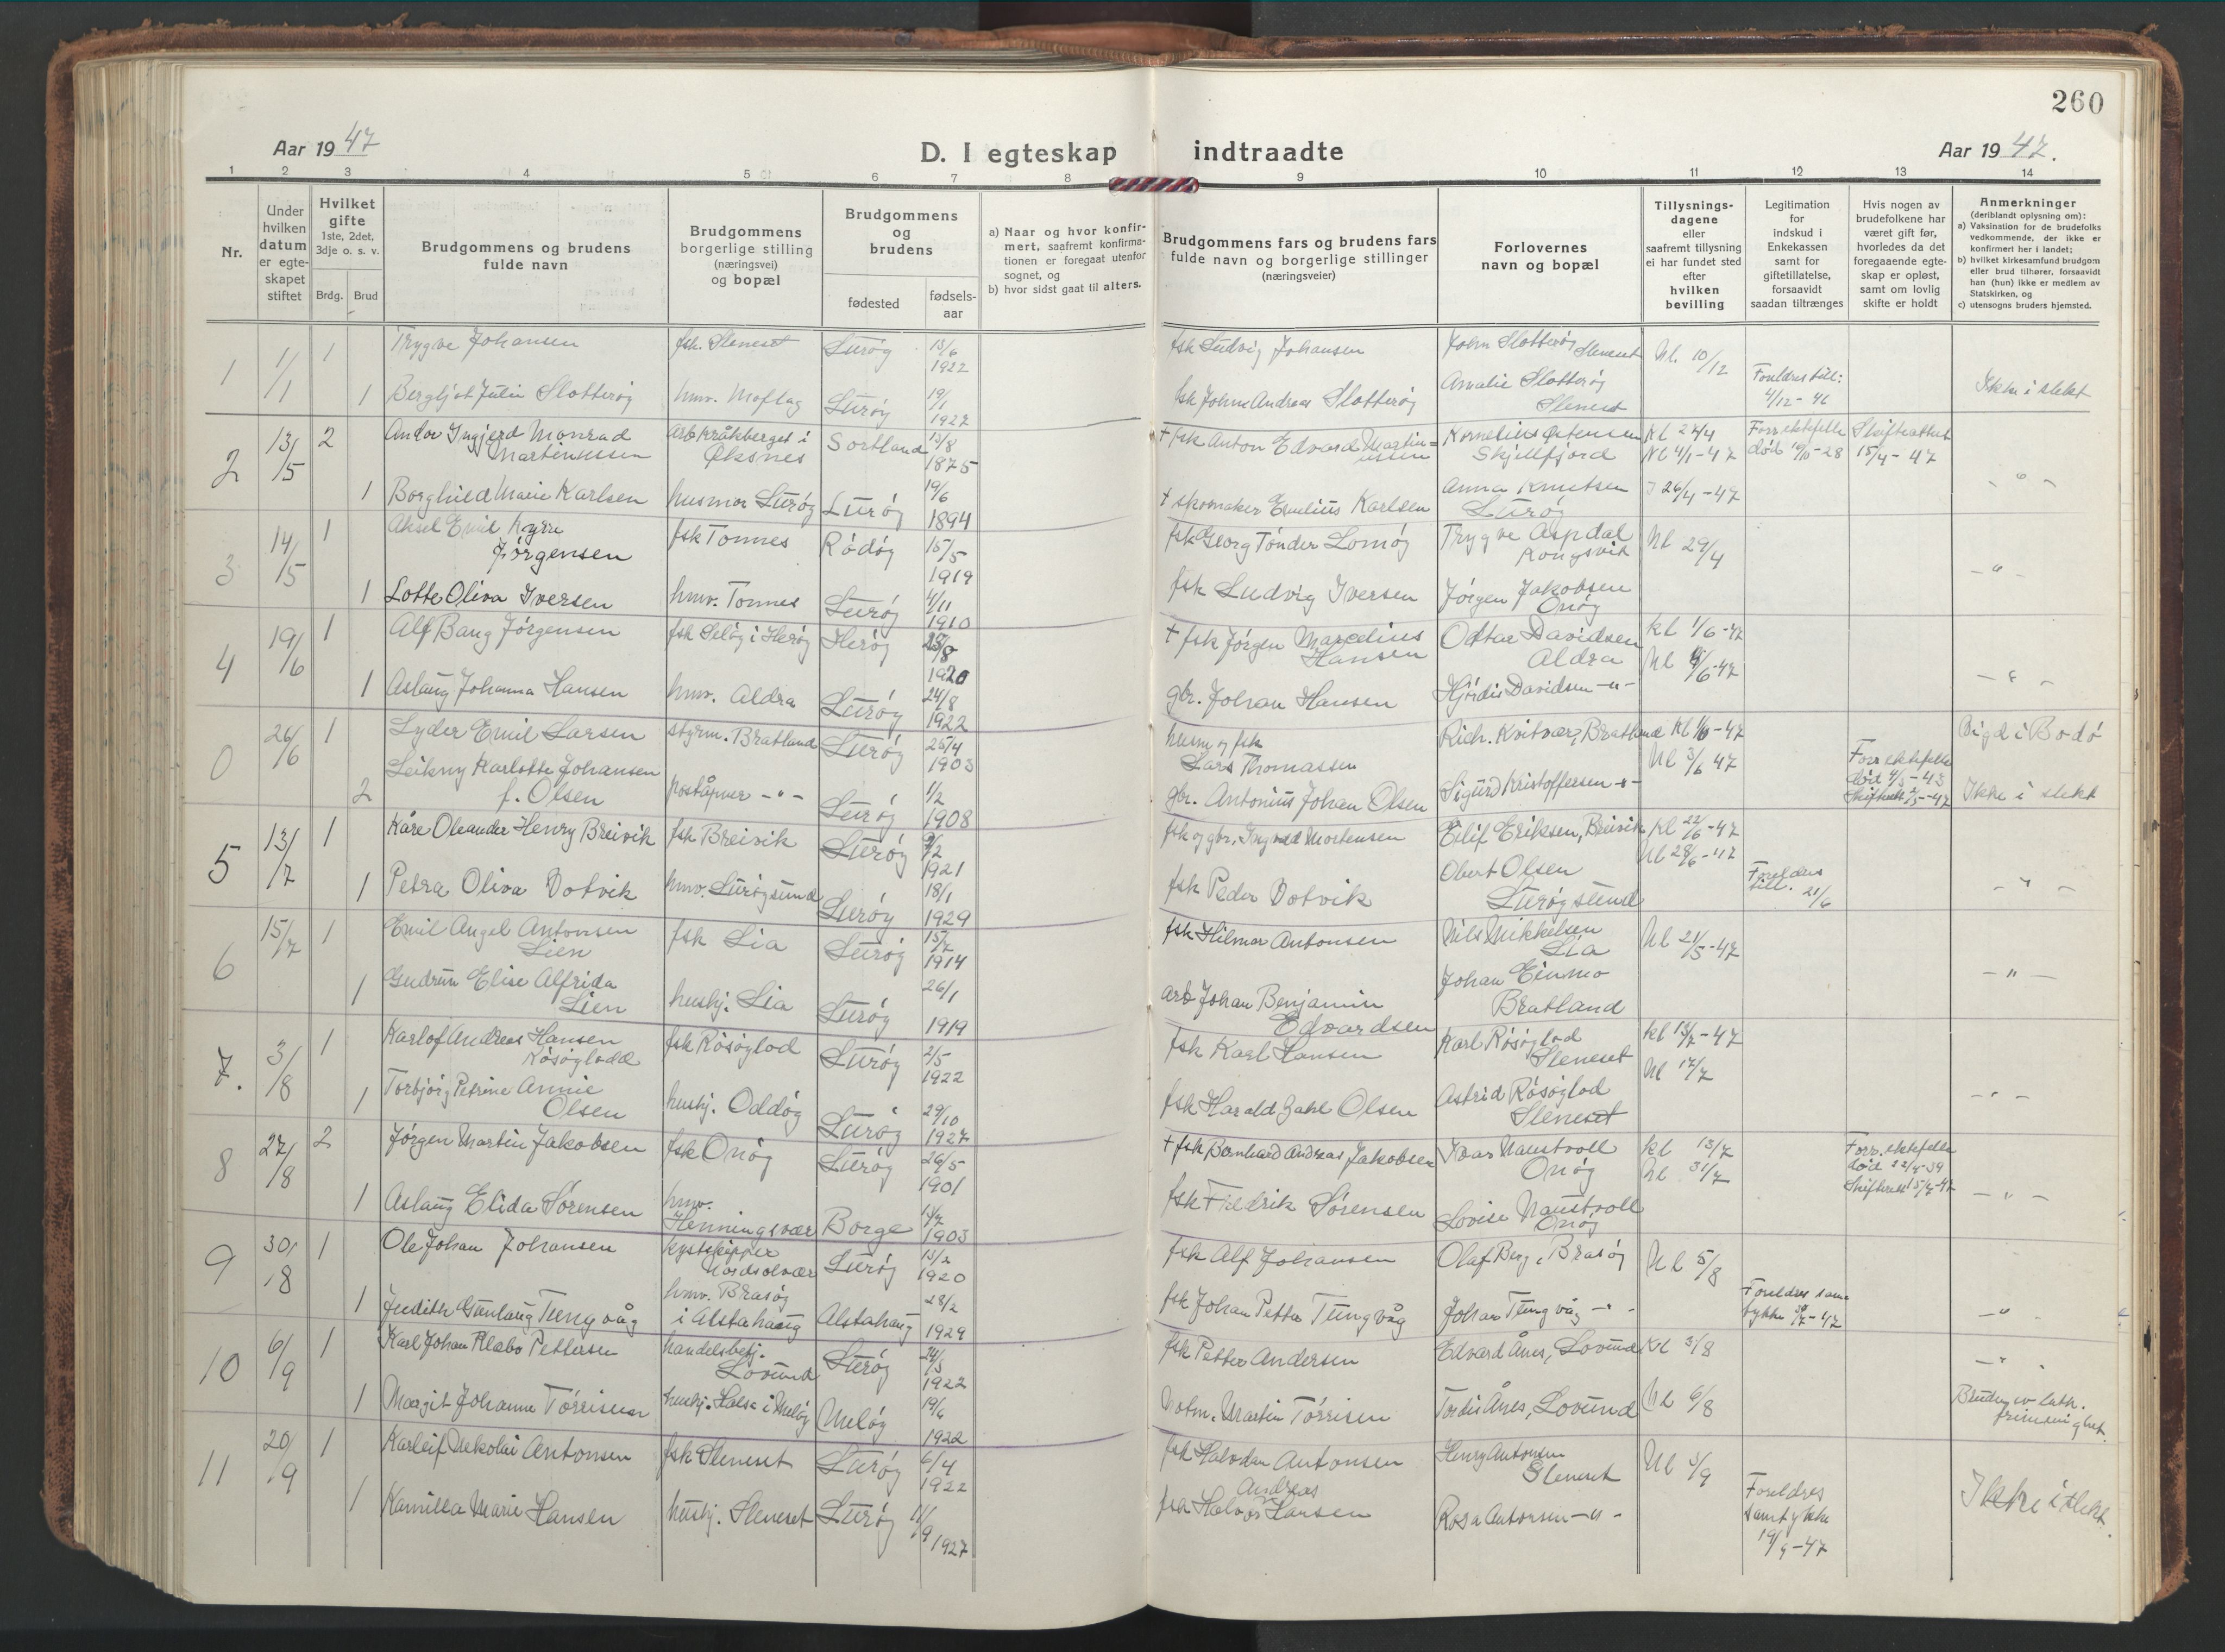 260
Aar 1947
D. I egteskap indtraadte
Aar 1947.
1 2 3 4 5 6 7 8 9 10 11 12 13 14
Nr.
Under hvilken datum er egteskapet stiftet
Hvilket gifte
1ste, 2det, 3dje o. s. v.
Brdg. Brud
Brudgommens og brudens fulde navn
Brudgommens borgerlige stilling (næringsvei) og bopæl
Brudgommens og brudens
fødested
fødselsaar
a) Naar og hvor konfirmert, saafremt konfirmationen er foregaat utenfor sognet, og
b) hvor sidst gaat til alters.
Brudgommens fars og brudens fars fulde navn og borgerlige stillinger (næringsveier)
Forlovernes navn og bopæl
Tillysningsdagene eller saafremt tillysning ei har fundet sted efter hvilken bevilling
Legitimation for indskud i Enkekassen samt for giftetillatelse, forsaavidt saadan tiltrænges
Hvis nogen av brudefolkene har været gift før, hvorledes da det foregaaende egteskap er opløst, samt om lovlig skifte er holdt
Anmerkninger
(deriblandt oplysning om):
a) Vaksination for de brudefolks vedkommende, der ikke er konfirmert her i landet;
b) hvilket kirkesamfund brudgom eller brud tilhører, forsaavidt han (hun) ikke er medlem av Statskirken, og
c) utensogns bruders hjemsted.
1 1/1 1 Trygve Johansen fsk. Sleneset Lurøy 13/6 1922 fsk Ludvig Johansen John Slotterøy Sleneset Nl. 10/12
1 Bergljot Julie Slotterøy hmv. Moflag Lurøy 19/1 1927 fsk Johns Andreas Slotterøy Amalie Slotterøy Sleneset Foreldres till: 4/12-46 Ikke i slekt
2 13/5 2 Andor Ingjerd Monrad Martinussen arb Kråkberget i Øksnes Sortland 13/8 1875 † fsk Anton Edvard Martinussen Kornelius Østensen Skjellfjord Kl 24/4 Nl 4/1-47 Forr. ektefelle død 10/10-28 Skifteattest 15/4-47
1 Borghild Marie Karlsen husmor Lurøy Lurøy 19/6 1894 † skomaker Emelius Karlsen Anna Knutsen Lurøy 26/4-47 - " -
3 14/5 1 Aksel Emil Kajrn Jörgensen fsk Tonnes Rödöy 15/5 1919 fsk Georg Tönder Lomöy Trygve Aspdal Kongsvik Nl 29/4
1 Lotte Oliva Iversen hmv. Tonnes Lurøy 4/11 1910 fsk Ludvig Iversen Jörgen Jakobsen Onøy - " -
4 19/6 1 Alf Bang Jörgensen fsk Seløy i Herøy Herøy 28/8 1920 † fsk Jörgen Marselius Hansen Ottar Davidsen Aldra Kl 1/6-47
1 Aslaug Johanna Hansen hmv. Aldra Lurøy 24/8 1922 gbr. Johan Hansen Hjördis Davidsen -"- Nl 4/6-47 - " -
0 26/6 1 Lyder Emil Larsen styrm. Bratland Lurøy 25/4 1903 husm og fsk Lars Thomassen Rich. Kvitvær, Bratland Kl 1/6-47 Vigd i Bodö
2 Leikny Karlotte Johansen f. Olsen poståpner -"- Lurøy 1/2 1908 gbr. Antonius Johan Olsen Sigurd Kristoffersen -"- Nl 3/6 47 Forr ektefelle död 4/3-43 Ikke i slekt
5 13/7 1 Kåre Oleander Henry Breivik fsk Breivik Lurøy 9/2 1921 fsk og gbr. Ingvald Mortensen Eilif Eriksen, Breivik Kl 22/6-47
1 Petra Oliva Dotvik hmv. Lurøysund Lurøy 18/1 1929 fsk Peder Dotvik Obert Olsen Lurøysund Nl 28/6-47 Foreldres till. 21/6 - " -
6 15/7 1 Emil Angel Antonsen Lien fsk Lia Lurøy 15/7 1914 fsk Hilmar Antonsen Nils Mikkelsen Lia Nl 21/5-47
1 Gudrun Elise Alfrida Lien hushj. Lia Lurøy 26/1 1919 arb Johan Benjamin Edvardsen Johan Einmo Bratland - " -
7. 3/8 1 Karlof Andreas Hansen Røsøylodd fsk Røsøylod Lurøy 2/5 1922 fsk Karl Hansen Karl Røsøylod Sleneset Kl 13/7-47
1 Torbjörg Petrine Annie Olsen hushj. Oddøy Lurøy 29/10 1927 fsk Harald Zahl Olsen Astrid Røsøylod Sleneset Nl 17/7 - " -
8 27/8 2 Jörgen Martin Jakobsen fsk Onøy Lurøy 26/5 1901 † fsk Bernhard Andreas Jakobsen Ivar Naustvoll Onøy Kl 13/7 Nl 31/7 Forr. ektefelle
1 Aslaug Elida Sörensen hmv. Henningsvær Borge 13/7 1903 fsk Fredrik Sörensen Lovise Naustvoll Onøy - " -
9 30/8 1 Ole Johan Johansen kystskipper Nordsolvær Lurøy 13/2 1920 fsk Alf Johansen Olaf Berg, Brasøy Nl 5/8
1 Judith Gunlaug Tungvåg hmv. Brasøy i Alstahaug Alstahaug 28/2 1929 fsk Johan Petter Tungvåg Johan Tungvåg -"- Foreldres samtykke 30/7-47 - " -
10 6/9 1 Karl Johan Klæbo Pettersen handelsbetj. Lovund Lurøy 24/3 1922 fsk Petter Andersen Edvard Ånes, Lovund Kl 3/8 - " -
1 Margit Johanne Törrissen hushj. Halsa i Meløy Meløy 19/6 1922 notm. Martin Törrisen Tordis Ånes, Lovund Nl 6/8 Bruden ev. luth. frimenighet.
11 20/9 1 Karleif Nekolai Antonsen fsk Sleneset Lurøy 6/4 1922 fsk Halvdan Antonsen Henry Antonsen Sleneset Nl 1/9
1 Kamilla Marie Hansen hushj. Sleneset Lurøy 11/9 1927 Halvor Andreas Hansen Rosa Antonsen -"- Foreldres samtykke 19/9-47 Ikke i slekt.